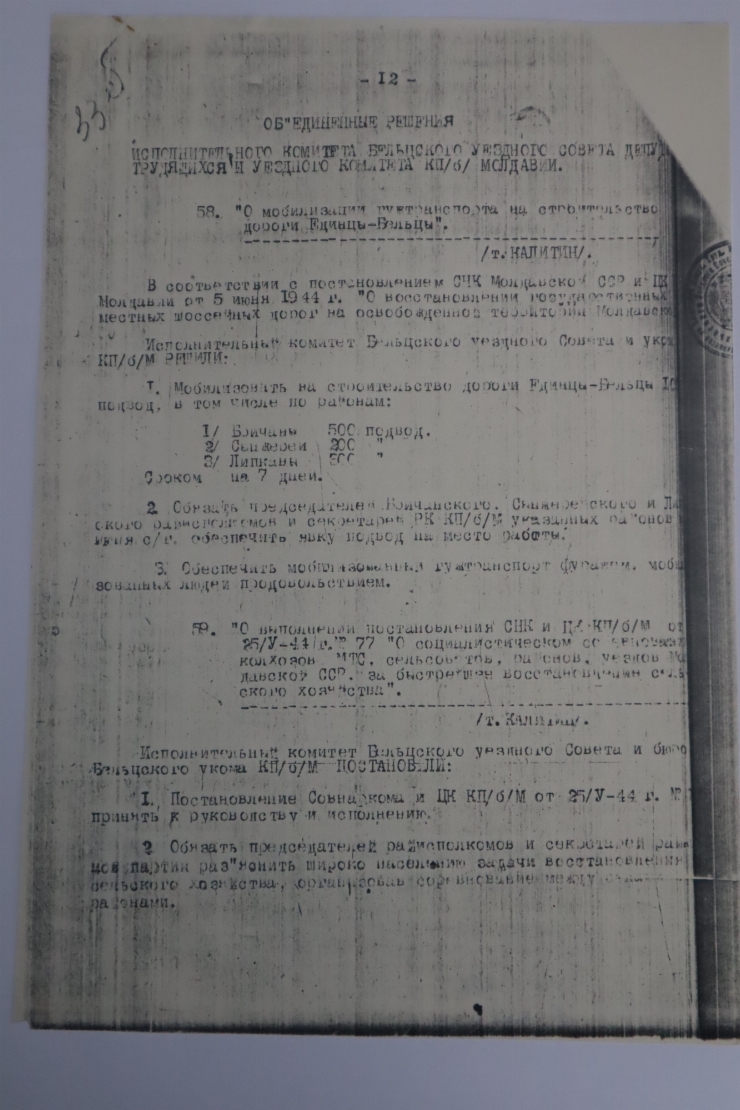 - 12 -
ОБ"ЕДИНЕННЫЕ РЕШЕНИЯ
ИСПОЛНИТЕЛЬНОГО КОМИТЕТА БЕЛЬЦСКОГО УЕЗДНОГО СОВЕТА ДЕПУ
ТРУДЯЩИХСЯ И УЕЗДНОГО КОМИТЕТА КП/б/ МОЛДАВИИ.
58. "О мобилизации гужтранспорта на строительство
дороги Единцы-Бельцы".
/т.КАЛИТИН/.
В соответствии с постановлением СНК Молдавской ССР и ЦК
Молдавии от 5 июня 1944 г. "О восстановлении государственных
местных шоссейных дорог на освобожденной территории Молдавск
Исполнительный комитет Бельцского уездного Совета и ук
КП/б/М РЕШИЛИ:
1. Мобилизовать на строительство дороги Единцы-Бельцы
подвод, в том числе по районам:
1/ Бричаны 500 подвод.
2/ Сынжереи 200 "
3/ Липканы 300 "
Сроком на 7 дней.
2. Обязать председателей Бричанского, Сынжерейского и Ли
ского райисполкомов и секретарей РК КП/б/М указанных районов
июня с/г. обеспечить явку подвод на место работы.
3. Обеспечить мобилизованный гужтранспорт фуражем, моби
зованных людей продовольствием.
59. "О выполнении постановления СНК и ЦК КП/б/М от
25/У-44 г. № 77 "О социалистическом соревновании
колхозов, МТС, сельсоветов, районов, уездов Мо
давской ССР, за быстрейшее восстановление сель
ского хозяйства".
/т. КАЛИТИН/.
Исполнительный комитет Бельцского уездного Совета и бюро
Бельцского укома КП/б/М ПОСТАНОВИЛИ:
1. Постановление Совнаркома и ЦК КП/б/М от 25/У-44 г. №
принять к руководству и исполнению.
2. Обязать председателей райисполкомов и секретарей рай
партии раз"яснить широко населению задачи восстановления
сельского хозяйства, организовав соревнование между
районами.